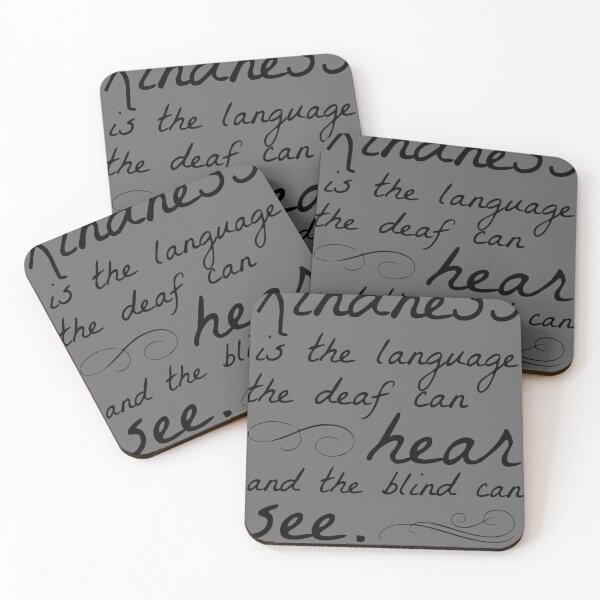 Kindness
is the language
the deaf can
Kindness
is the language
the deaf can
hear
can
Kindness
is the language
the deaf can
hea
and the bli
see.
Kindness
is the language
the deaf can
hear
and the blind can
see.